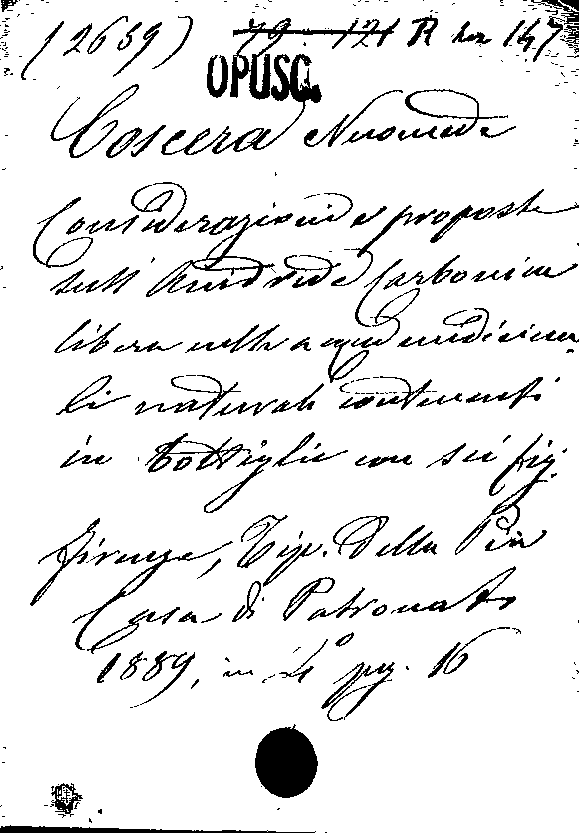 (2659) 79 - 121 R ... 147
OPUSC.
Coscera Nicomede
Considerazioni e proposte
sull'Anidride Carbonica
libera nelle acque medicina
li naturali contenenti
in bottiglie con sei fig.
Firenze, Tip. Della Pia
Casa di Patronato
1889, in 4° pag. 16